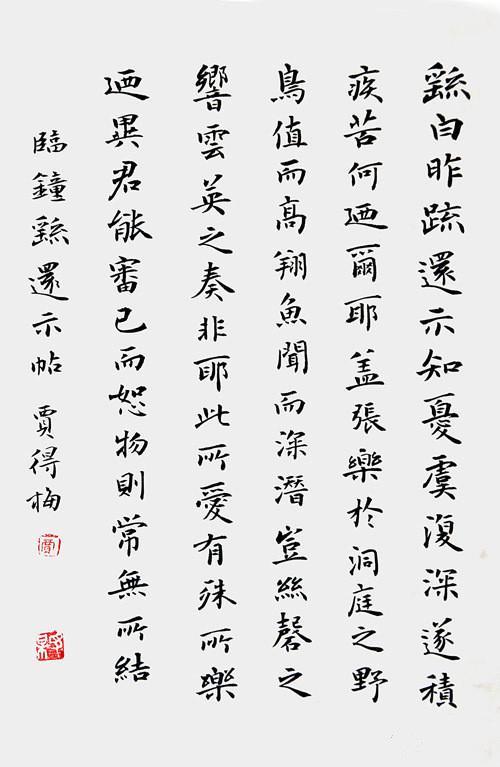 繇白昨疏還示知憂虞復深遂積
疾苦何迺爾耶盖張樂於洞庭之野
鳥值而高翔魚聞而深潛豈絲磬之
響雲英之奏非耶此所愛有殊所樂
迺異君能審己而恕物則常無所結
臨鐘繇還示帖 賈得梅